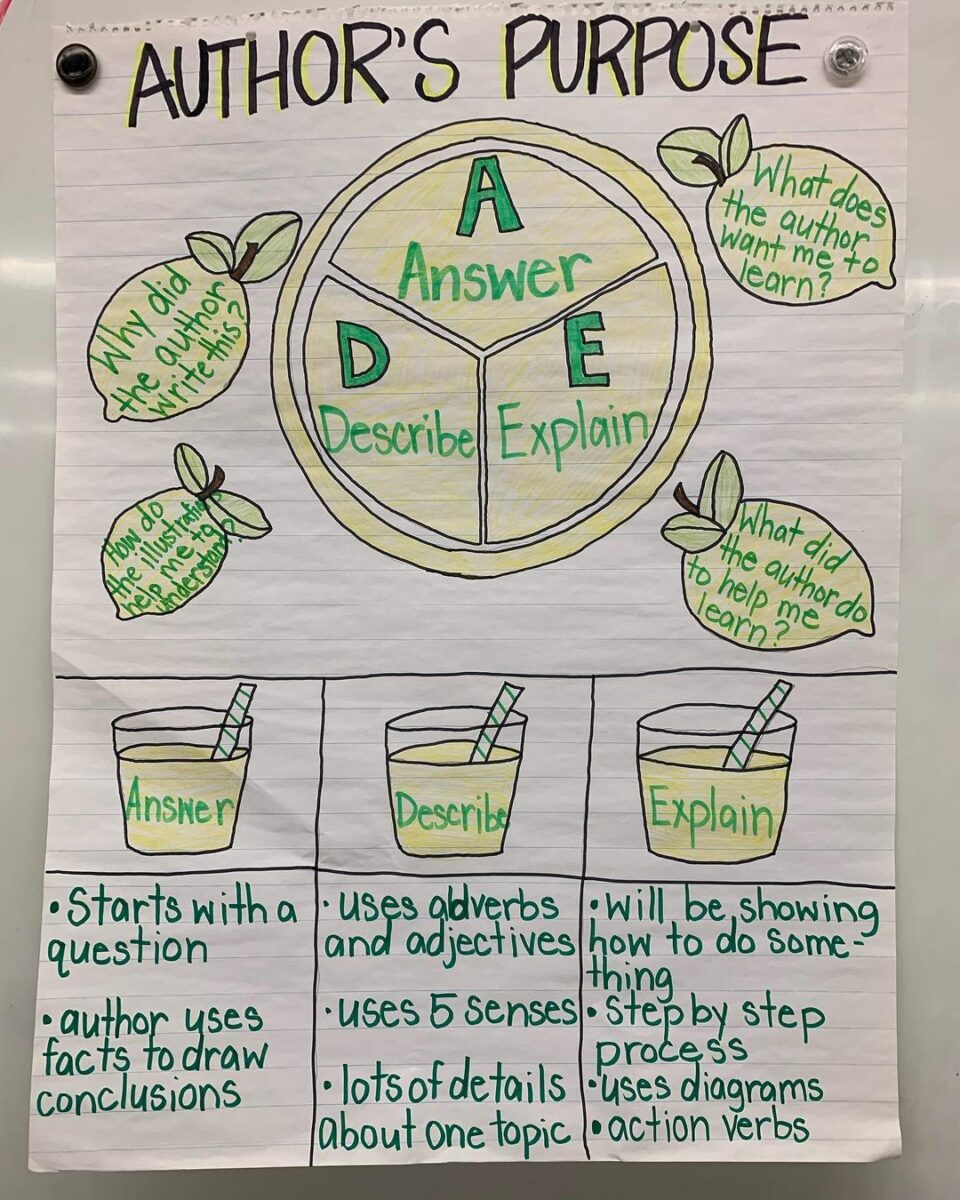 AUTHOR'S PURPOSE
A
Answer
D
Describe
E
Explain
Why did
the author
write this?
What does
the author
want me to
learn?
How do
the illustrations
help me to
understand?
What did
the author do
to help me
learn?
Answer
Describe
Explain
• Starts with a
question
• author uses
facts to draw
conclusions
• uses adverbs
and adjectives
• uses 5 senses
• lots of details
about one topic
• will be showing
how to do some-
thing
• step by step
process
• uses diagrams
• action verbs